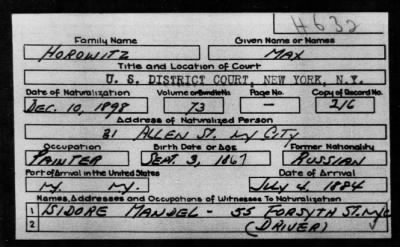 H632
Family Name Given Name or Names
HOROWITZ MAX
Title and Location of Court
U. S. DISTRICT COURT, NEW YORK, N.Y.
Date of Naturalization Volume or Bundle No. Page No. Copy of Record No.
DEC. 10, 1898 73 — 216
Address of Naturalized Person
81 ALLEN ST. NY CITY
Occupation Birth Date or Age Former Nationality
PAINTER SEPT. 3, 1867 RUSSIAN
Port of Arrival in the United States Date of Arrival
N.Y. N.Y. JULY 4, 1884
Names, Addresses and Occupations of Witnesses To Naturalization
1 ISIDORE MANDEL - 55 FORSYTH ST. NYC
2 (DRIVER)